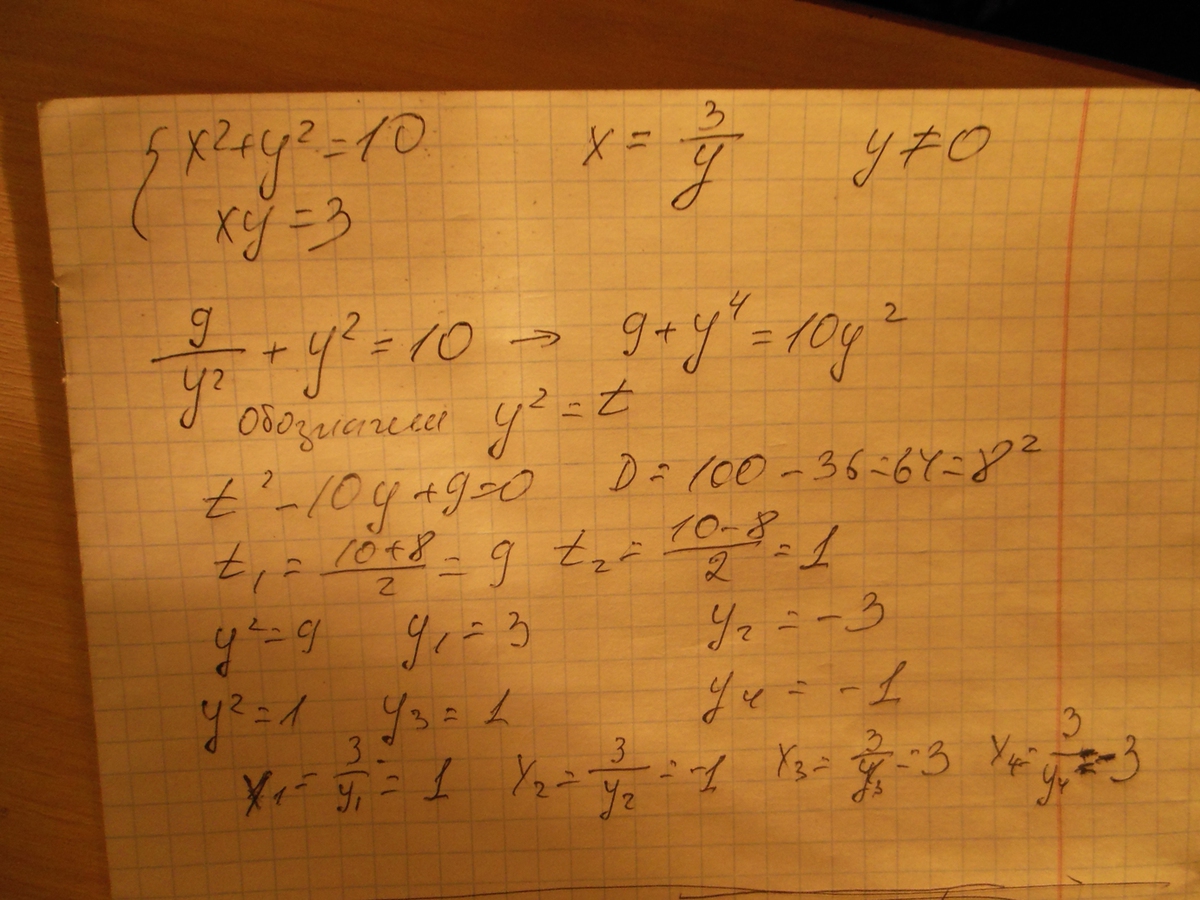 { x² + y² = 10    x = 3/y    y ≠ 0
xy = 3
9/y² + y² = 10 → 9 + y⁴ = 10y²
Обозначим y² = t
t² - 10y + 9 = 0    D = 100 - 36 = 64 = 8²
t₁ = (10+8)/2 = 9    t₂ = (10-8)/2 = 1
y² = 9    y₁ = 3    y₂ = -3
y² = 1    y₃ = 1    y₄ = -1
x₁ = 3/y₁ = 1    x₂ = 3/y₂ = -1    x₃ = 3/y₃ = 3    x₄ = 3/y₄ = -3